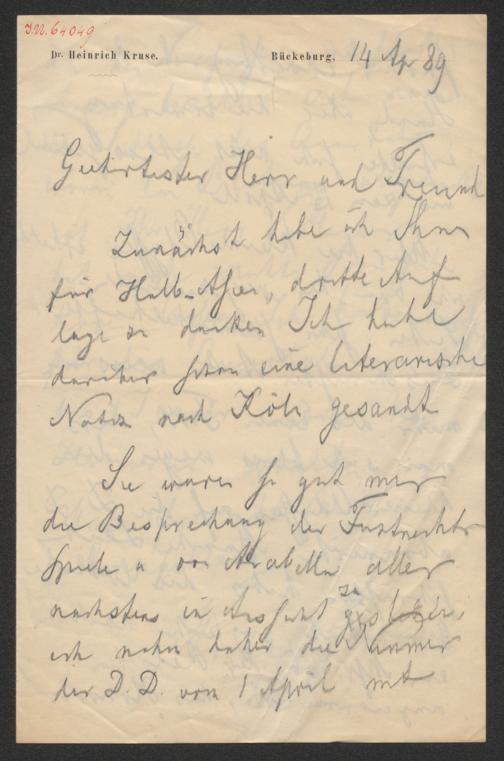 I.N. 64049
Dr. Heinrich Kruse. Bückeburg, 14 Ap 89
Geehrtester Herr und Freund
Zunächst habe ich Ihnen
für Halb-Asien, dritte Auf
lage zu danken Ich habe
darüber schon eine literarische
Notiz nach Köln gesandt
Sie waren so gut mir
die Besprechung der Fastnachts
spiele u von Arabella aller
nächstens in Aussicht zu
ich nahm daher die Nummer
der D. D. vom 1 April mit